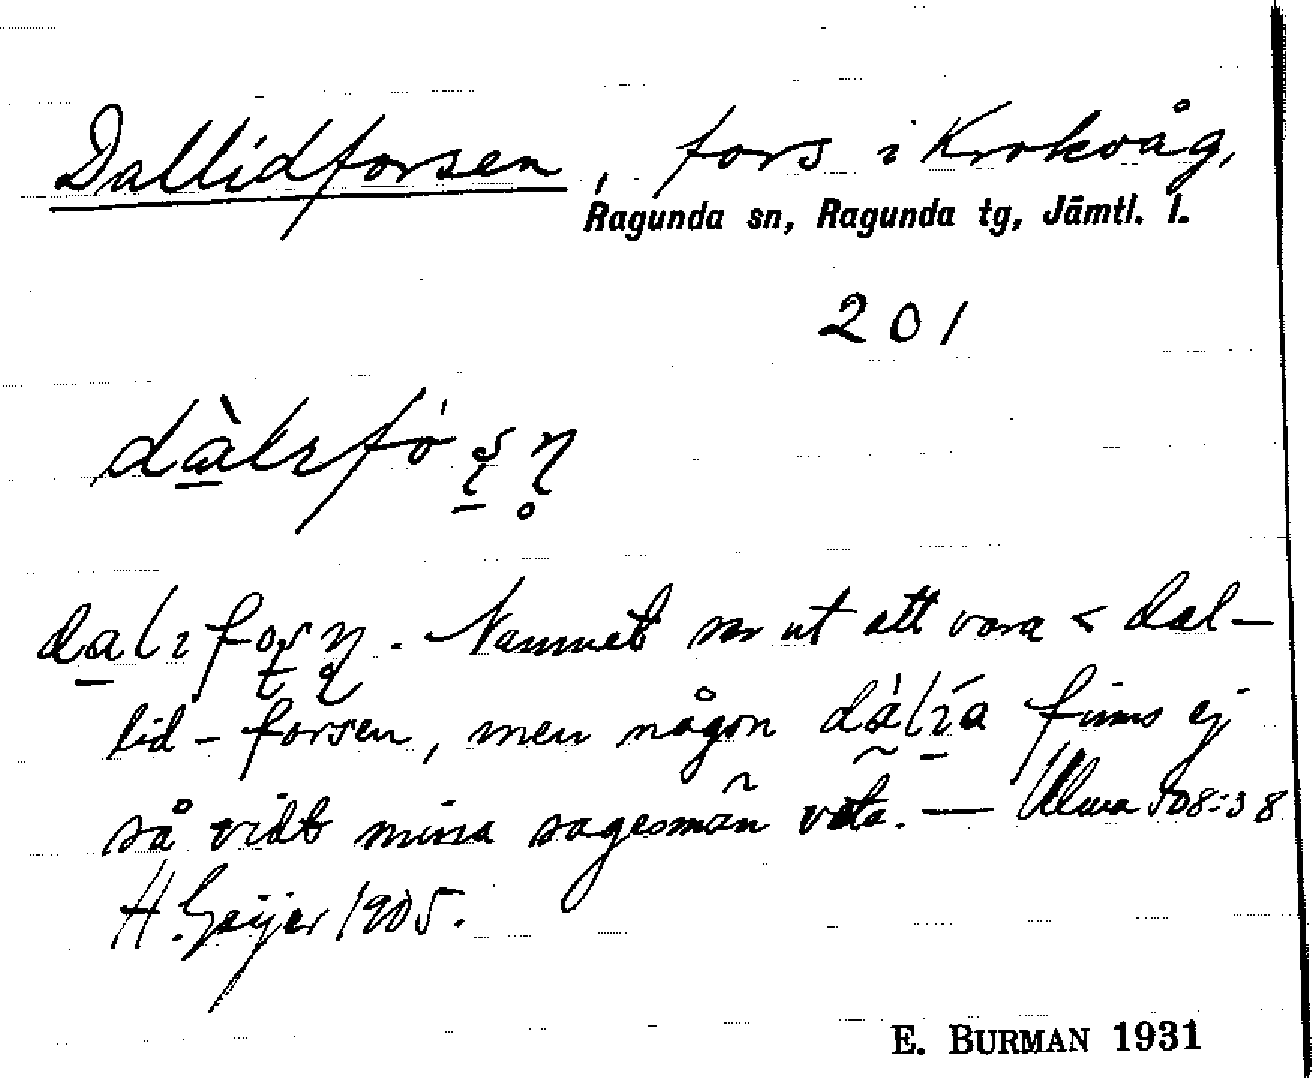 Dallidforsen, fors i Krokvåg,
Ragunda sn, Ragunda tg, Jämtl. l.
201
dàlɪfó ʂ ɳ̥
dalɪfoʂɳ. Namnet ser ut att vara < dal-
lid-forsen, men någon dálɪ́a finns ej
så vidt mina sagesmän veta. — Ulma 508:38
H. Geijer 1905.
E. BURMAN 1931